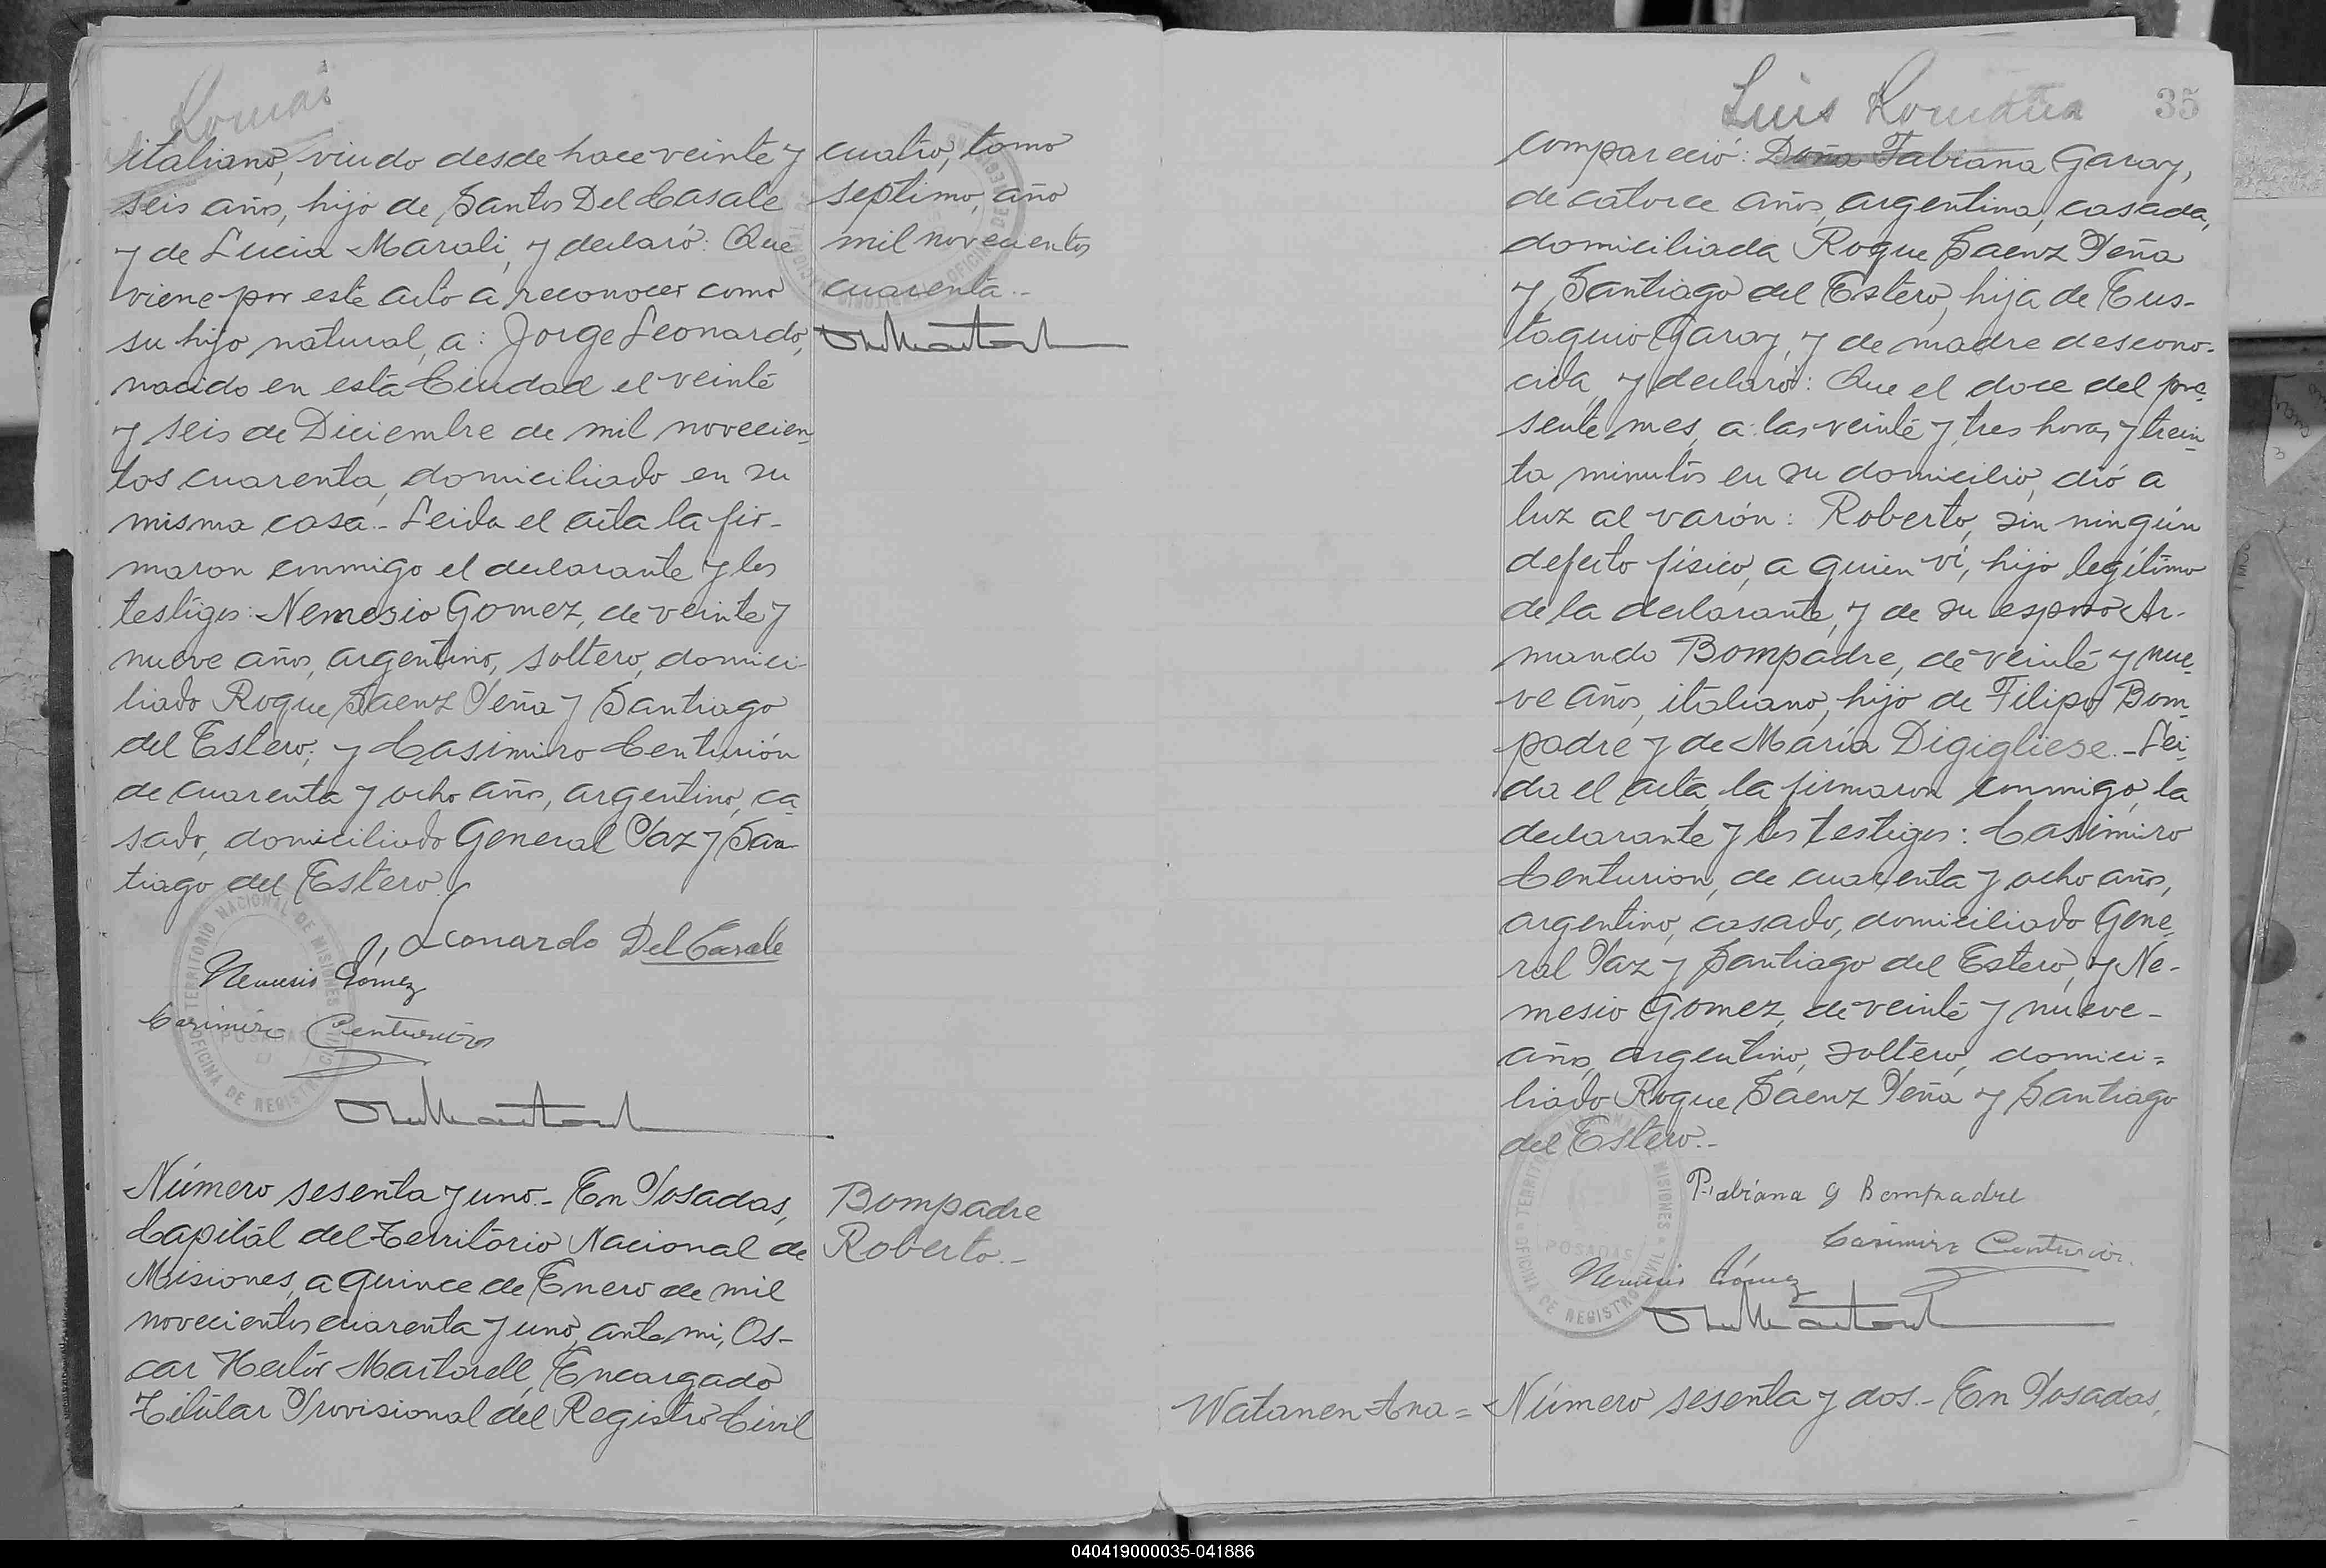 italiano, viudo desde hace veinte y
seis años, hijo de Santos Del Casale
y de Lucia Marali, y declaró: Que
viene por este acto a reconocer como
su hijo natural, a: Jorge Leonardo,
nacido en esta Ciudad el veinte
y seis de Diciembre de mil novecien-
tos cuarenta, domiciliado en su
misma casa.- Leida el acta la fir-
maron conmigo el declarante y los
testigos: Nemesio Gomez, de veinte y
nueve años, argentino, soltero, domici-
liado Roque Saenz Peña y Santiago
del Estero; y Casimiro Centurión
de cuarenta y ocho años, argentino, ca-
sado, domiciliado General Paz y San-
tiago del Estero.
Leonardo Del Casale
Nemesio Gómez
Casimiro Centurión
TERRITORIO NACIONAL DE MISIONES
POSADAS
OFICINA DE REGISTRO CIVIL
cuatro, tomo
septimo, año
mil novecientos
cuarenta.-
Número sesenta y uno.- En Posadas,
Capital del Territorio Nacional de
Misiones, a quince de Enero de mil
novecientos cuarenta y uno, ante mi, Os-
car Hector Martorell, Encargado
Titular Provisional del Registro Civil
Bompadre
Roberto.-
Luis
35
compareció: Doña Fabiana Garay,
de catorce años, argentina, casada,
domiciliada Roque Saenz Peña
y Santiago del Estero, hija de Eus-
taquio Garay, y de madre descono-
cida, y declaró: Que el doce del pre-
sente mes, a las veinte y tres horas y trein-
ta minutos en su domicilio, dió a
luz al varón: Roberto, sin ningún
defecto físico, a quien ví, hijo legítimo
de la declarante, y de su esposo Ar-
mando Bompadre, de veinte y nue-
ve años, italiano, hijo de Filipo Bom-
padre y de María Digigliese.- Lei-
da el acta, la firmaron conmigo, la
declarante y los testigos: Casimiro
Centurion, de cuarenta y ocho años,
argentino, casado, domiciliado Gene-
ral Paz y Santiago del Estero, y Ne-
mesio Gomez, de veinte y nueve-
años, argentino, soltero, domici=
liado Roque Saenz Peña y Santiago
del Estero.-
Fabiana G Bompadre
Casimiro Centurión
Nemesio Gómez
POSADAS
OFICINA DE REGISTRO CIVIL
Watanen Ana = Número sesenta y dos.- En Posadas,
040419000035-041886